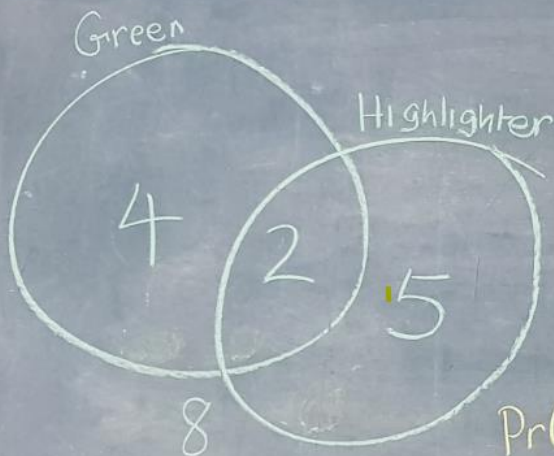 Green
Highlighter
4
2
5
8
Pr(